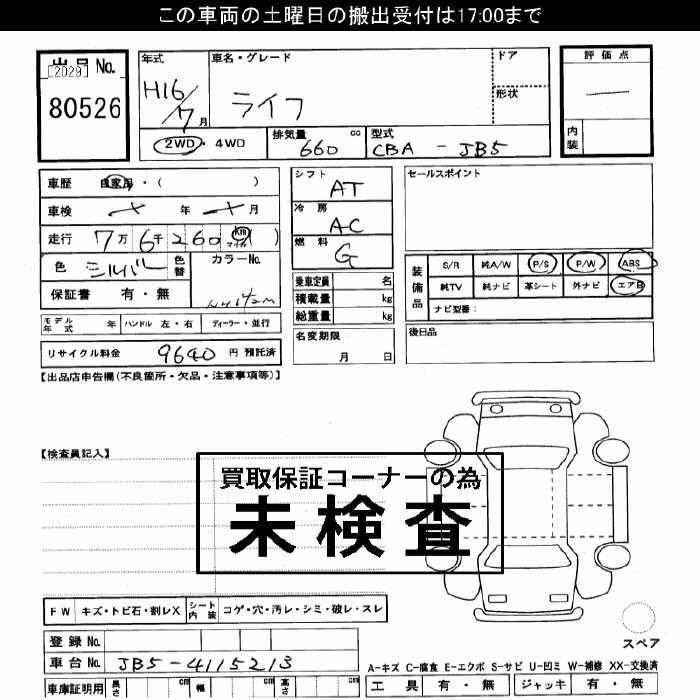 この車両の土曜日の搬出受付は17:00まで
出品No.
[2029]
80526
年式
H16/7月
車名・グレード
ライフ
ドア
形状
評価点
内装
2WD・4WD
排気量 660 cc
型式 CBA - JB5
車歴 自家用・( )
車検 年 月
走行 7万6千260 km マイル ( )
色 シルバー 色替
カラーNo.
保証書 有・無
モデル年式 年 ハンドル 左・右 ディーラー・並行
リサイクル料金 9640 円 預託済
シフト AT
冷房 AC
燃料 G
乗車定員 名
積載量 kg
総重量 kg
名変期限
月 日
セールスポイント
装備品
S/R 純A/W P/S P/W ABS
純TV 純ナビ 革シート 外ナビ エアB
ナビ型番:
後日品
【出品店申告欄(不良箇所・欠品・注意事項等)】
【検査員記入】
買取保証コーナーの為
未検査
FW キズ・トビ石・割レX シート内装 コゲ・穴・汚レ・シミ・破レ・スレ
登録No.
車台No. JB5-4115213
車庫証明用 長さ cm 幅 cm 高さ cm
スペア
A-キズ C-腐食 E-エクボ S-サビ U-凹ミ W-補修 XX-交換済
工具 有・無 ジャッキ 有・無